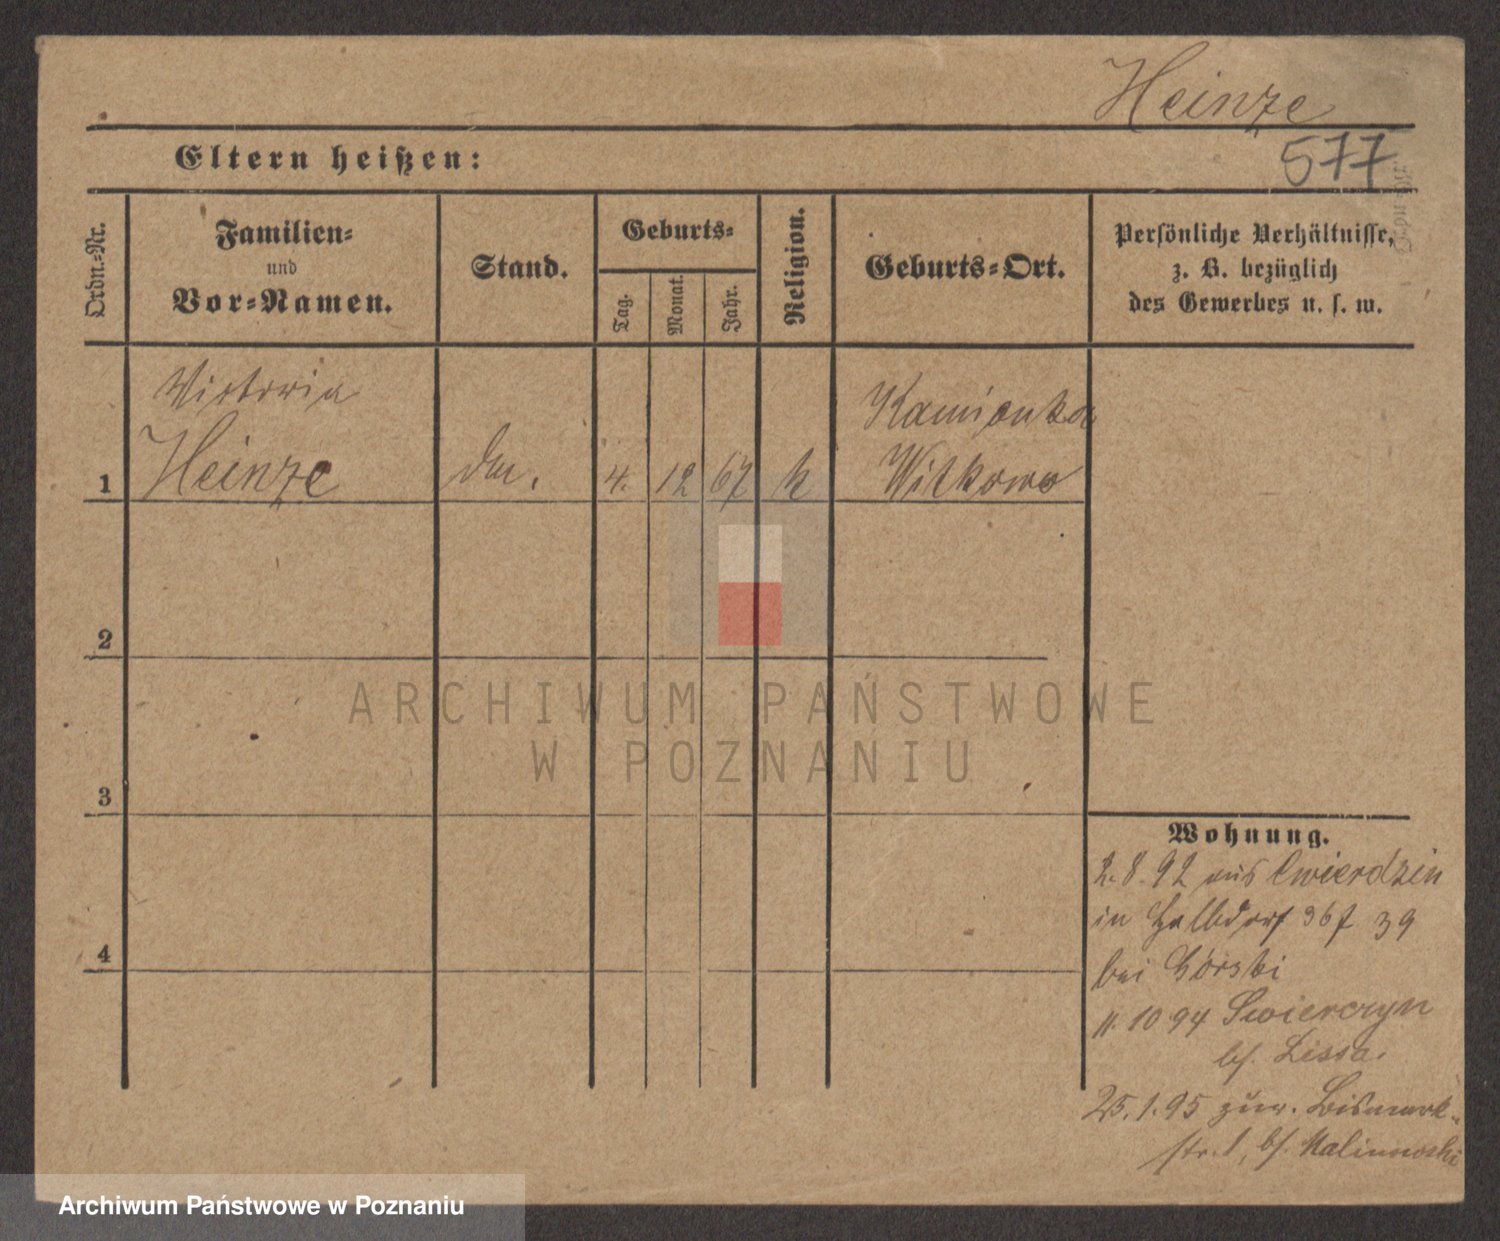 Heinze
577
Eltern heißen:
Ordn.-Nr.
Familien-
und
Vor-Namen.
Stand.
Geburts-
Tag.
Monat.
Jahr.
Religion.
Geburts-Ort.
Persönliche Verhältnisse,
z. B. bezüglich
des Gewerbes u. s. w.
Victoria
Heinze
4.
12
67
k
Kamionka
Witkowo
1
2
3
4
ARCHIWUM PAŃSTWOWE
W POZNANIU
Wohnung.
2.8.92 aus Cwierdzin
in Halbdorf 39
bei Górski
11.10 94 Swierczyn
b/. Lissa.
25.1.95 zur. Bismark-
str. 1, b/. Malinowski
Archiwum Państwowe w Poznaniu